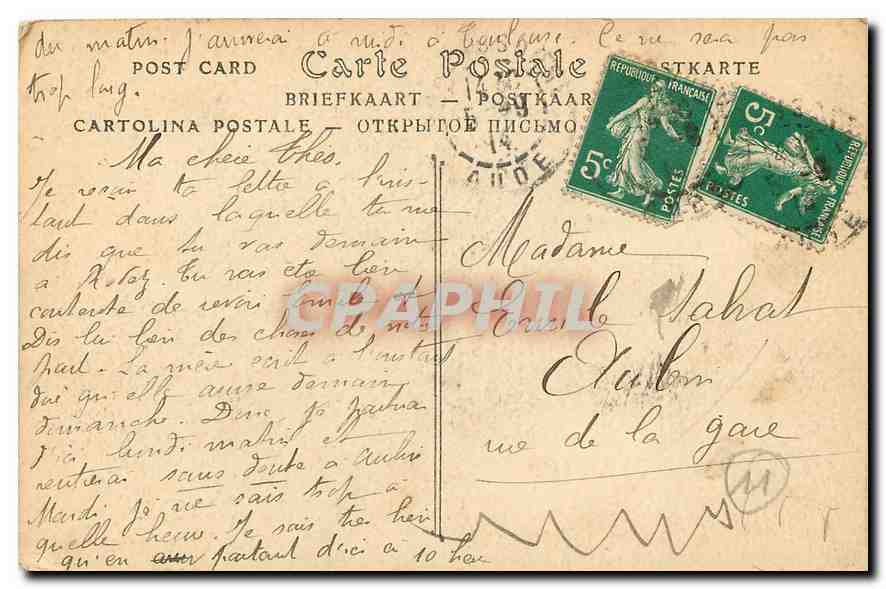 du matin j'arriverai à midi à Toulouse. Ce ne sera pas
trop long.
POST CARD Carte Postale POSTKARTE
BRIEFKAART — POSTKAAR
CARTOLINA POSTALE — ОТКРЫТОЕ ПИСЬМО
14
AUDE
REPUBLIQUE FRANÇAISE
5c
POSTES
REPUBLIQUE FRANÇAISE
5c
POSTES
Ma chère
Je reçois ta lettre à l'ins-
tant dans laquelle tu me
dis que tu vas demain
à Rodez. Tu vas être bien
contente de revoir et
Dis lui bien des choses de notre
part. La mère écrit à l'instant
qu'elle arrive demain
dimanche. Donc je partirai
d'ici lundi matin et
rentrerai sans doute à Aubin
Mardi je ne sais trop à
quelle heure. Je sais très bien
qu'en partant d'ici à 10 heu
Madame
Aubin
rue de la gare
11
CPAPHIL